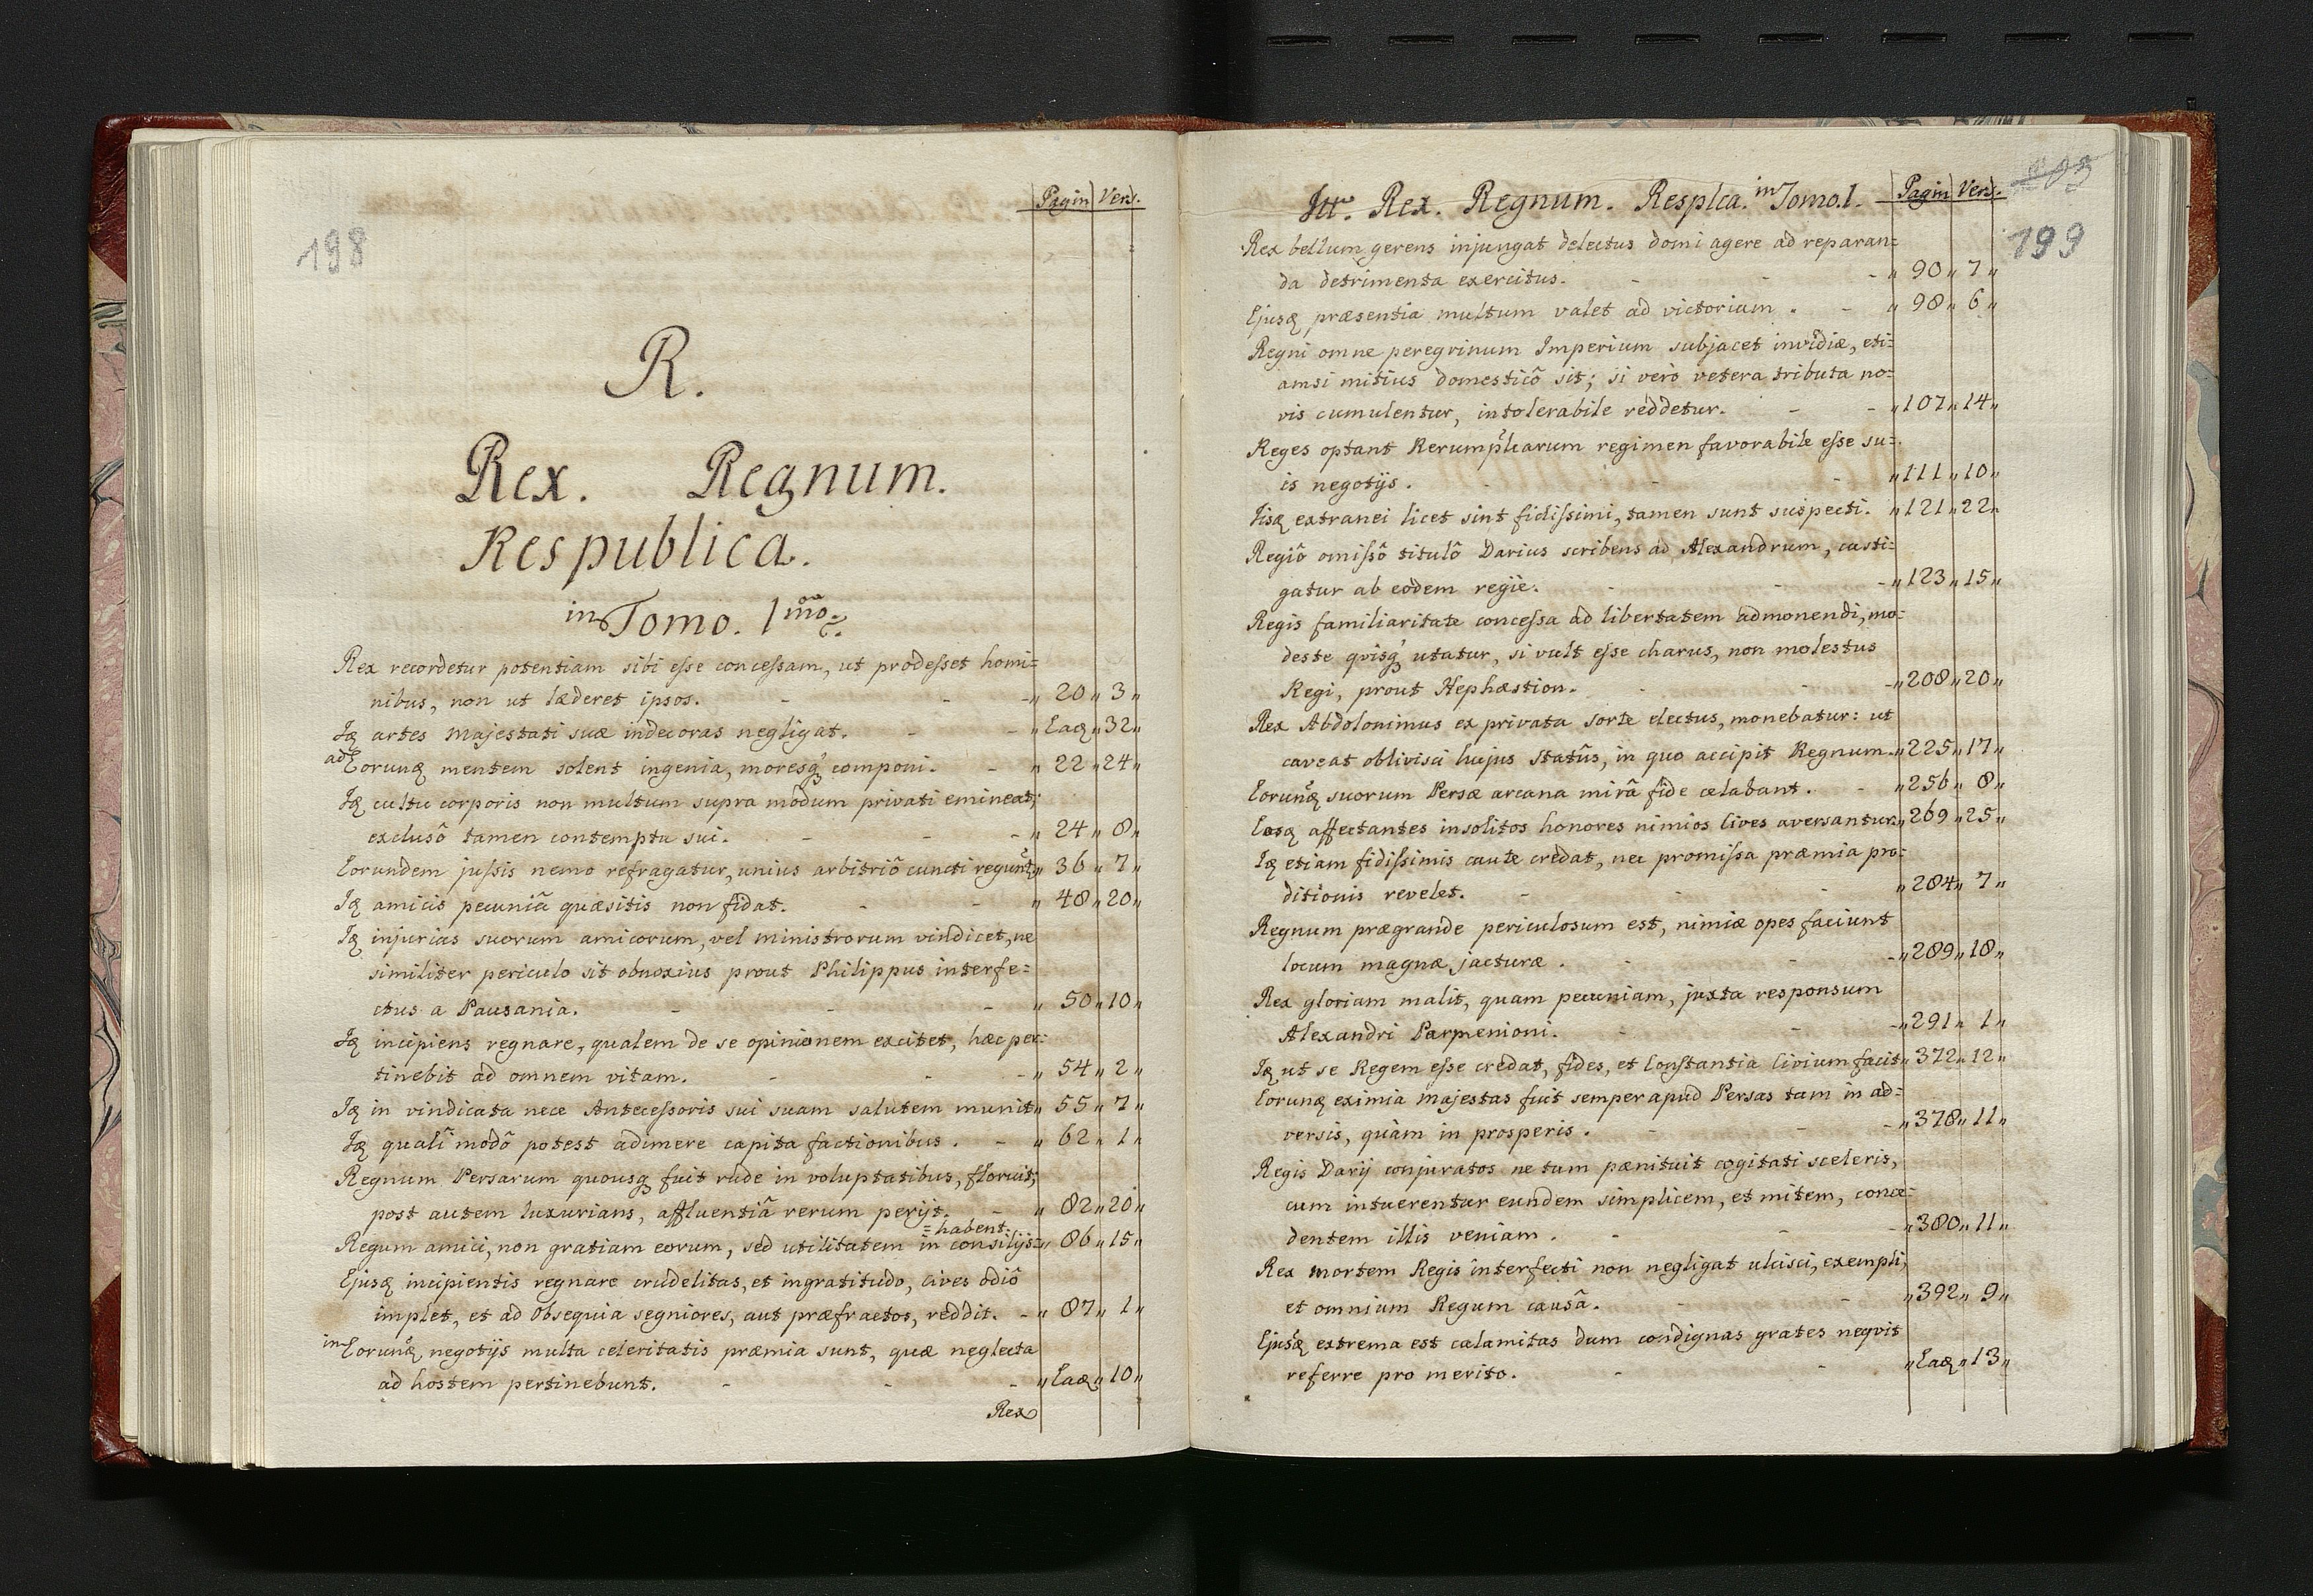 198
Pagin Vers.
R.
Rex. Regnum.
Respublica.
in Tomo. 1mo.
Rex recordetur potentiam sibi esse concessam, ut prodesset homi=
nibus, non ut læderet ipsos. - - - „ 20 „ 3 „
Iq artes Majestati suæ indecoras negligat. - - „ Eaq „ 32 „
ad Eorunq mentem solent ingenia, moresq componi. - „ 22 „ 24 „
Iq cultu corporis non multum supra modum privati emineat,
exclusô tamen contemptu sui. - - - „ 24 „ 8 „
Eorundem jussis nemo refragatur, unius arbitriô cuncti regunt „ 36 „ 7 „
Iq amicis pecuniâ quæsitis non fidat. - - „ 48 „ 20 „
Iq injurias suorum amicorum, vel Ministrorum vindicet, ne
similiter periculo sit obnoxius prout Philippus interfe=
ctus a Pausania. - - - „ 50 „ 10 „
Iq incipiens regnare, qualem de se opinionem excitet, hæc per=
tinebit ad omnem vitam. - - - „ 54 „ 2 „
Iq in vindicata nece Antecessoris sui suam salutem munit „ 55 „ 7 „
Iq quali modô potest adimere capita factionibus. - „ 62 „ 1 „
Regnum Persarum quousq fuit rude in voluptatibus, floruit;
post autem luxurians, affluentiâ rerum perijt. - „ 82 „ 20 „
= habent.
Regum amici, non gratiam eorum, sed utilitatem in consilijs = „ 86 „ 15 „
Ejusq incipientis regnare crudelitas, et ingratitudo, cives odiô
implet, et ad Obsequia segniores, aut præfractos, reddit. - „ 87 „ 1 „
in Eorunq negotijs multa celeritatis præmia sunt, quæ neglecta
ad hostem pertinebunt. - - - „ Eaq „ 10 „
Rex
203
Itt. Rex. Regnum. Resplca. in Tomo.1. Pagin Vers.
199
Rex bellum gerens injungat delectus domi agere ad reparan=
da detrimenta exercitus. - - - „ 90 „ 7 „
Ejusq præsentia multum valet ad victoriam. - „ 98 „ 6 „
Regni omne peregrinum Imperium subjacet invidiæ, eti=
amsi mitius domesticô sit; si verò vetera tributa no=
vis cumulentur, intolerabile reddetur. - - „ 107 „ 14 „
Reges optant Rerumplicarum regimen favorabile esse su=
is negotijs. - - - „ 111 „ 10 „
Iisq extranei licet sint fidissimi, tamen sunt suspecti. „ 121 „ 22 „
Regiô omissô titulô Darius scribens ad Alexandrum, casti=
gatur ab eodem regie. - - - „ 123 „ 15 „
Regis familiaritate concessa ad libertatem admonendi, mo=
deste qvisq utatur, si vult esse charus, non molestus
Regi, prout Hephæstion. - - - „ 208 „ 20 „
Rex Abdolonimus ex privata sorte electus, monebatur: ut
caveat oblivisci hujus Statûs, in quo accipit Regnum. „ 225 „ 17 „
Eorunq suorum Persæ arcana mirâ fide celabant. - „ 256 „ 8 „
Eosq affectantes insolitos honores nimios Cives aversantur. „ 269 „ 25 „
Iq etiam fidissimis caute credat, nec promissa præmia pro=
ditionis revelet. - - - „ 284 „ 7 „
Regnum prægrande periculosum est, nimiæ opes faciunt
locum magnæ jacturæ. - - - „ 289 „ 18 „
Rex gloriam malit, quam pecuniam, juxta responsum
Alexandri Parmenioni. - - - „ 291 „ 1 „
Iq ut se Regem esse credat, fides, et Constantia Civium facit „ 372 „ 12 „
Eorunq eximia Majestas fuit semper apud Persas tam in ad=
versis, quàm in prosperis. - - - „ 378 „ 11 „
Regis Darij conjuratos ne tum pænituit cogitati sceleris,
cum intuerentur eundem simplicem, et mitem, conce=
dentem illis veniam. - - - „ 380 „ 11 „
Rex mortem Regis interfecti non negligat ulcisci, exempli,
et omnium Regum causâ. - - „ 392 „ 9 „
Ejusq extrema est calamitas dum condignas grates neqvit
referre pro merito. - - „ Eaq „ 13 „